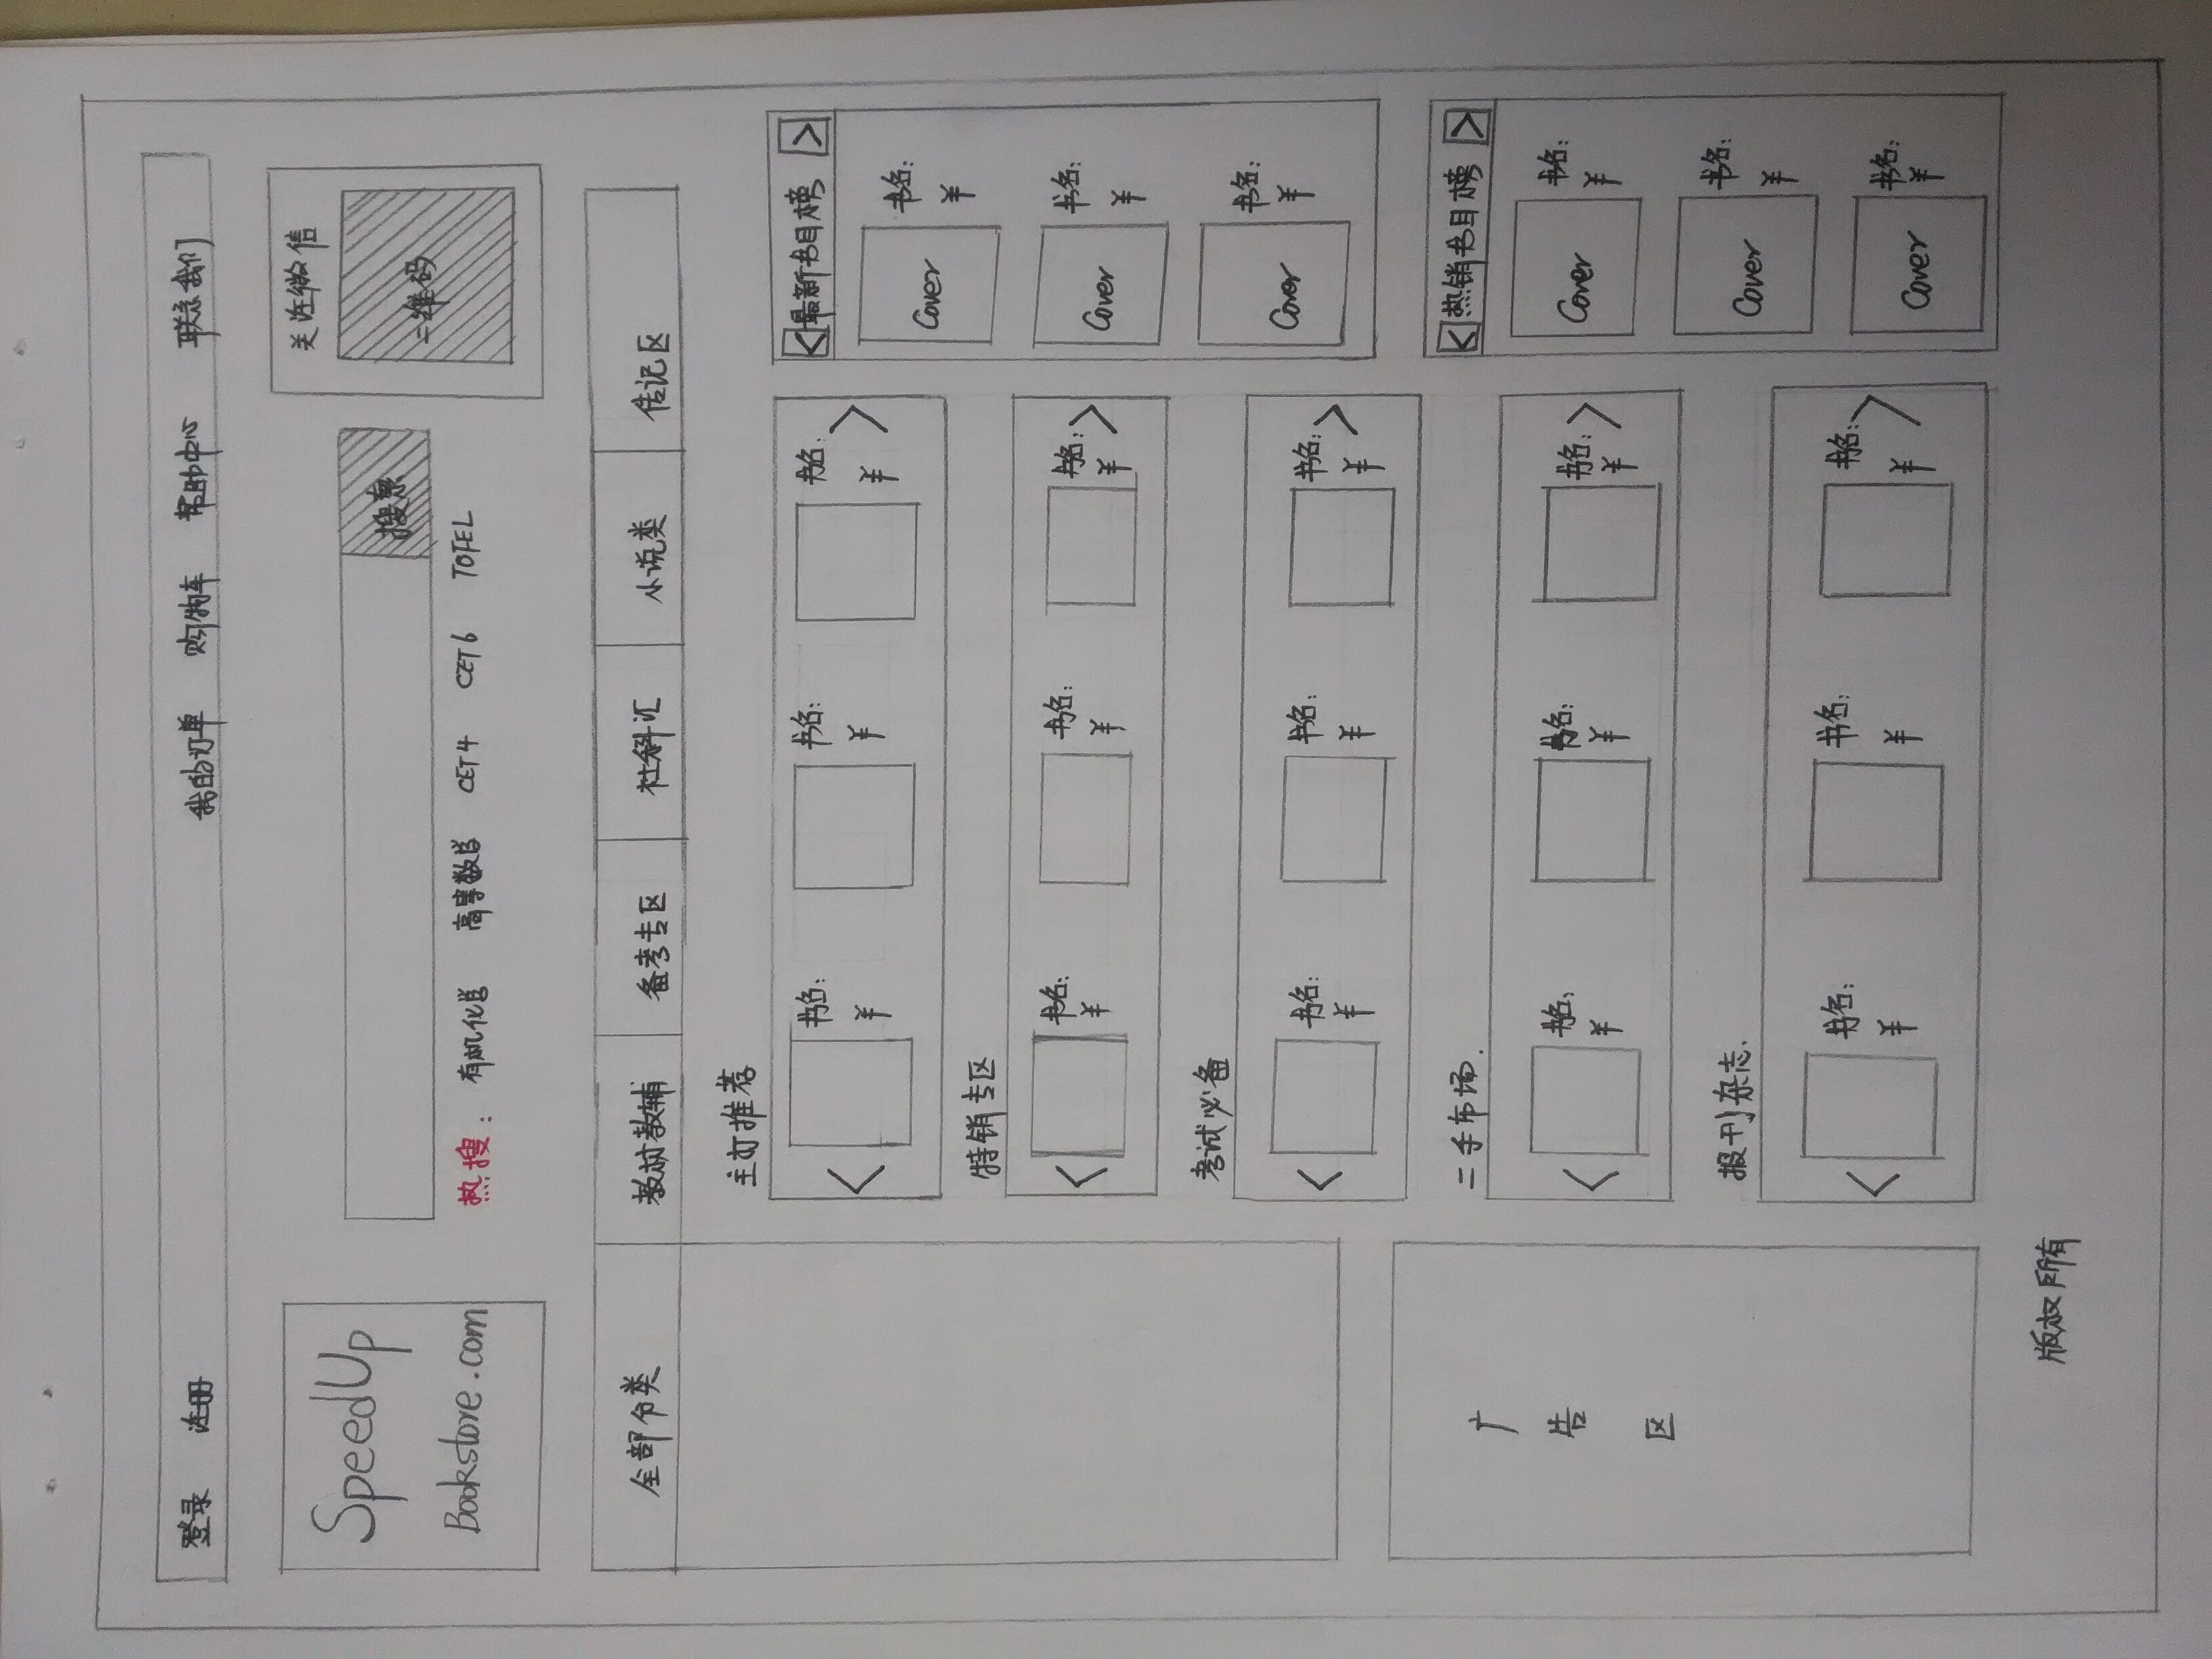 登录 注册 我的订单 购物车 帮助中心 联系我们
SpeedUp
Bookstore.com
搜索
热搜: 有机化学 高等数学 CET4 CET6 TOFEL
关注微信
二维码
全部分类 教材教辅 备考专区 社科汇 小说类 传记区
主打推荐
< 书名: 书名: 书名: >
¥ ¥ ¥
特销专区
< 书名: 书名: 书名: >
¥ ¥ ¥
考试必备
< 书名: 书名: 书名: >
¥ ¥ ¥
二手市场.
< 书名: 书名: 书名: >
¥ ¥ ¥
报刊杂志.
< 书名: 书名: 书名: >
¥ ¥ ¥
< 最新书目榜 >
Cover 书名:
¥
Cover 书名:
¥
Cover 书名:
¥
< 热销书目榜 >
Cover 书名:
¥
Cover 书名:
¥
Cover 书名:
¥
广
告
区
版权所有